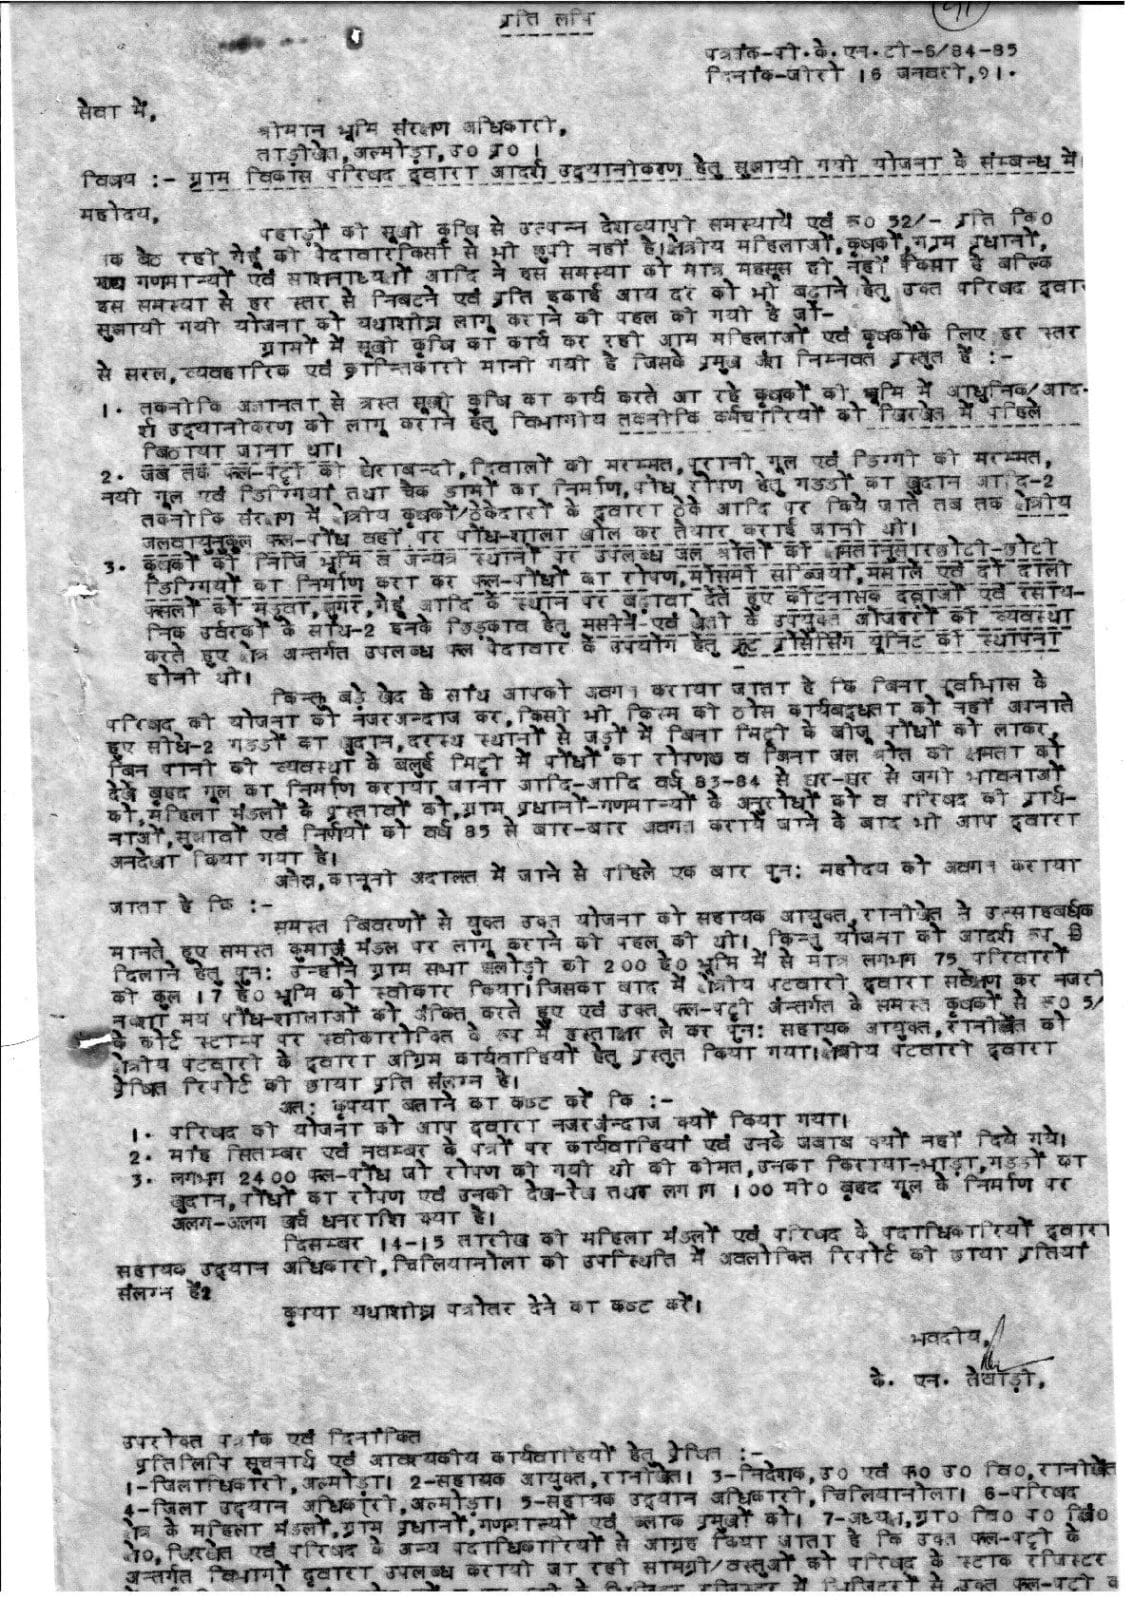 प्रति लिपि
पत्रांक-पी.के.एन.टी-6/84-85
दिनांक-जीरो 16 जनवरी,91.
सेवा में,
श्रीमान भूमि संरक्षण अधिकारी,
ताड़ीखेत,अल्मोड़ा,उ0 प्र0 ।
विषय :- ग्राम विकास परिषद द्वारा आदर्श उद्यानीकरण हेतु सुझायी गयी योजना के सम्बन्ध में।
महोदय,
पहाड़ों की सूखी कृषि से उत्पन्न देशव्यापी समस्यायें एवं रू0 52/- प्रति कि0
तक बैठ रही गेहूं की पैदावार किसी से भी छुपी नहीं है। क्षेत्रीय महिलाओं,कृषकों,ग्राम प्रधानों,
गणमान्यों एवं आदि ने इस समस्या को मात्र महसूस ही नहीं किया है बल्कि
इस समस्या से हर स्तर से निबटने एवं प्रति इकाई आय दर को भी बढ़ाने हेतु उक्त परिषद द्वारा
सुझायी गयी योजना को यथाशीघ्र लागू कराने की पहल की गयी है जो-
ग्रामों में सूखी कृषि का कार्य कर रही आम महिलाओं एवं कृषकों के लिए हर स्तर
से सरल,व्यवहारिक एवं क्रान्तिकारी मानी गयी है जिसके प्रमुख अंश निम्नवत प्रस्तुत हैं :-
1. तकनीकि अज्ञानता से त्रस्त सूखी कृषि का कार्य करते आ रहे कृषकों की भूमि में आधुनिक/आद-
र्श उद्यानीकरण को लागू कराने हेतु विभागीय तकनीकि कर्मचारियों को जिरखेत में पहिले
बिठाया जाना था।
2. जब तक फल-पट्टी की घेराबन्दी,दिवालों की मरम्मत,पुरानी गूल एवं डिग्गी की मरम्मत,
नयी गूल एवं डिग्गियां तथा चैक डामों का निर्माण,पौध रोपण हेतु गडडों का खुदान आदि-2
तकनीकि संरक्षण में क्षेत्रीय कृषकों/ठेकेदारों के द्वारा ठेके आदि पर किये जाते तब तक क्षेत्रीय
जलवायुनुकूल फल-पौध वहीं पर पौध-शाला खोल कर तैयार कराई जानी थी।
3. कृषकों की निजि भूमि व अन्यत्र स्थानों पर उपलब्ध जल श्रोतों की क्षमतानुसार छोटी-छोटी
डिग्गियों का निर्माण करा कर फल-पौधों का रोपण,मौसमी सब्जियां,मसाले एवं दो दाली
फसलों को मडुवा, गेहूं आदि के स्थान पर बढ़ावा देते हुए कीटनासक दवाओं एवं रसाय-
निक उर्वरकों के साथ-2 इनके छिड़काव हेतु मसीनें एवं खेती के उपयुक्त औजारों की व्यवस्था
करते हुए क्षेत्र अन्तर्गत उपलब्ध फल पैदावार के उपयोग हेतु फ्रूट प्रोसेसिंग यूनिट की स्थापना
होनी थी।
किन्तु बड़े खेद के साथ आपको अवगत कराया जाता है कि बिना पूर्वाभास के
परिषद की योजना को नजरअन्दाज कर,किसी भी किस्म की ठोस कार्यबद्धता को नहीं अपनाते
हुए सीधे-2 गडडों का खुदान,दूरस्थ स्थानों से जड़ों में बिना मिट्टी के बीजू पौधों को लाकर,
बिन पानी की व्यवस्था के बलुई मिट्टी में पौधों का रोपण व बिना जल श्रोत की क्षमता को
देखे बृहद गूल का निर्माण कराया जाना आदि-आदि वर्ष 83-84 से घर-घर से जगी भावनाओं
को,महिला मंडलों के प्रस्तावों को,ग्राम प्रधानों-गणमान्यों के अनुरोधों को व परिषद की प्रार्थ-
नाओं,सुझावों एवं निर्णयों को वर्ष 85 से बार-बार अवगत कराये जाने के बाद भी आप द्वारा
अनदेखा किया गया है।
कानूनी अदालत में जाने से पहिले एक बार पुन: महोदय को अवगत कराया
जाता है कि :-
समस्त विवरणों से युक्त उक्त योजना को सहायक आयुक्त,रानीखेत ने उत्साहबर्धक
मानते हुए समस्त कुमाऊं मंडल पर लागू कराने की पहल की थी। किन्तु योजना को आदर्श रूप
दिलाने हेतु पुन: उन्होंने ग्राम सभा की 200 है0 भूमि में से मात्र लगभग 75 परिवारों
की कुल 17 है0 भूमि को स्वीकार किया।जिसका बाद में क्षेत्रीय पटवारी द्वारा सर्वेक्षण कर नजरी
नक्शा मय पौध-शालाओं को अंकित करते हुए एवं उक्त फल-पट्टी अन्तर्गत के समस्त कृषकों से रू0 5/
के कोर्ट स्टाम्प पर स्वीकारोक्ति के रूप में हस्ताक्षर ले कर पुन: सहायक आयुक्त,रानीखेत को
क्षेत्रीय पटवारी के द्वारा अग्रिम कार्यवाहियों हेतु प्रस्तुत किया गया। क्षेत्रीय पटवारी द्वारा
प्रेषित रिपोर्ट की छाया प्रति संलग्न है।
अत: कृपया बताने का कष्ट करें कि :-
1. परिषद की योजना को आप द्वारा नजरअंन्दाज क्यों किया गया।
2. माह सितम्बर एवं नवम्बर के पत्रों पर कार्यवाहियां एवं उनके जवाब क्यों नहीं दिये गये।
3. लगभग 2400 फल-पौध जो रोपण की गयी थी की कीमत,उनका किराया-भाड़ा,गडडों का
खुदान,पौधों का रोपण एवं उनकी देख-रेख तथा लगभग 100 मी0 बृहद गूल के निर्माण पर
अलग-अलग खर्च धनराशि क्या है।
दिसम्बर 14-15 तारीख की महिला मंडलों एवं परिषद के पदाधिकारियों द्वारा
सहायक उद्यान अधिकारी,चिलियानौला की उपस्थिति में अवलोकित रिपोर्ट की छाया प्रतियां
संलग्न हैं।
कृपया यथाशीघ्र पत्रोतर देने का कष्ट करें।
भवदीय,
के. एन. तेवाड़ी,
उपरोक्त पत्रांक एवं दिनांकित
प्रतिलिपि सूचनार्थ एवं आवश्यकीय कार्यवाहियों हेतु प्रेषित :-
1-जिलाधिकारी,अल्मोड़ा। 2-सहायक आयुक्त,रानीखेत। 3-निदेशक,उ0 एवं फ0 उ0 वि0,रानीखेत
4-जिला उद्यान अधिकारी,अल्मोड़ा। 5-सहायक उद्यान अधिकारी,चिलियानौला। 6-परिषद
क्षेत्र के महिला मंडलों,ग्राम प्रधानों,गणमान्यों एवं ब्लाक प्रमुखों को। 7-अध्यक्ष,ग्रा0 वि0 प0
जिरखेत एवं परिषद के अन्य पदाधिकारियों से आग्रह किया जाता है कि उक्त फल-पट्टी के
अन्तर्गत विभागों द्वारा उपलब्ध करायी जा रही सामग्री/वस्तुओं को परिषद के स्टाक रजिस्टर